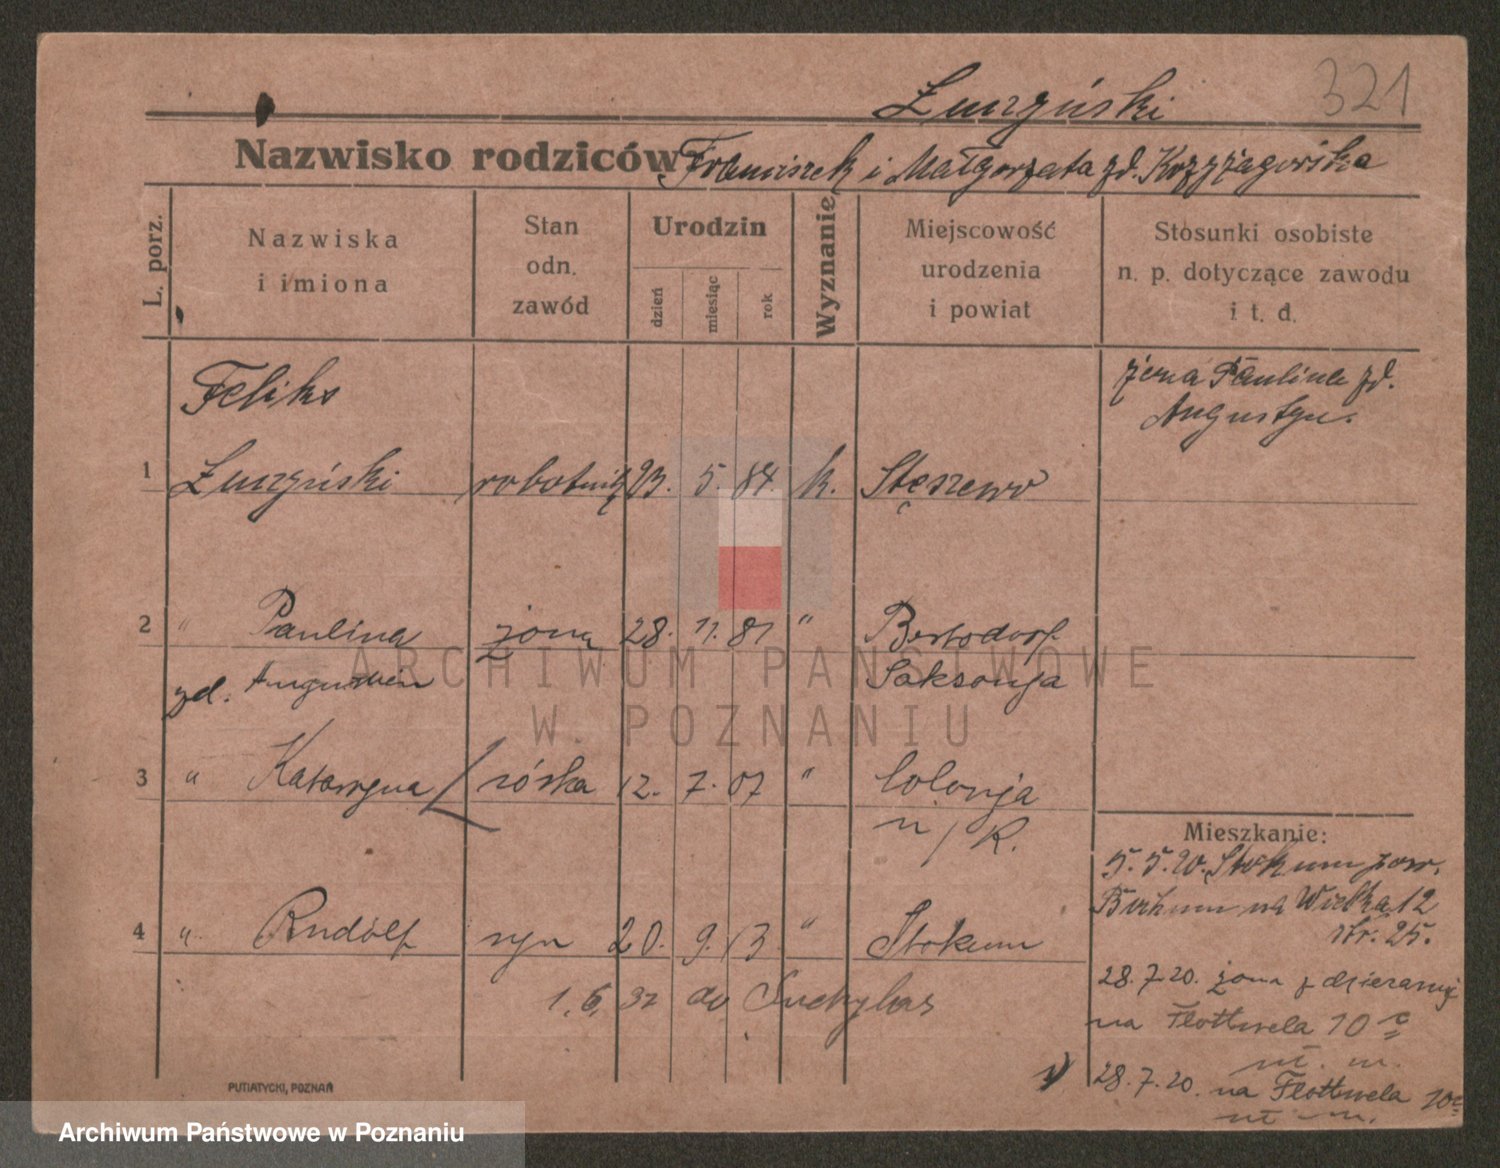 321
Nazwisko rodziców Franciszek i Małgorzata zd.
L. porz.
Nazwiska
i imiona
Stan
odn.
zawód
Urodzin
dzień
miesiąc
rok
Wyznanie
Miejscowość
urodzenia
i powiat
Stosunki osobiste
n. p. dotyczące zawodu
i t. d.
żona Paulina zd.
Augustyn.
Feliks
1 robotnik 23. 5. 84. k. Stęszewo
2 " Paulina żona 28. 11. 81 "
zd. Saksonja
3 " Katarzyna córka 12. 7. 07 " Colonja
n/R.
4 " Rudolf syn 20. 9. 13 " Stokum
1.6.32 do Suchylas
Mieszkanie:
5.5.20. Stokum pow.
na Wielka 12
str. 25.
28.7.20. żona z
na Flottwela 10
28.7.20. na Flottwela 10
PUTIATYCKI, POZNAŃ
ARCHIWUM PAŃSTWOWE
W POZNANIU
Archiwum Państwowe w Poznaniu